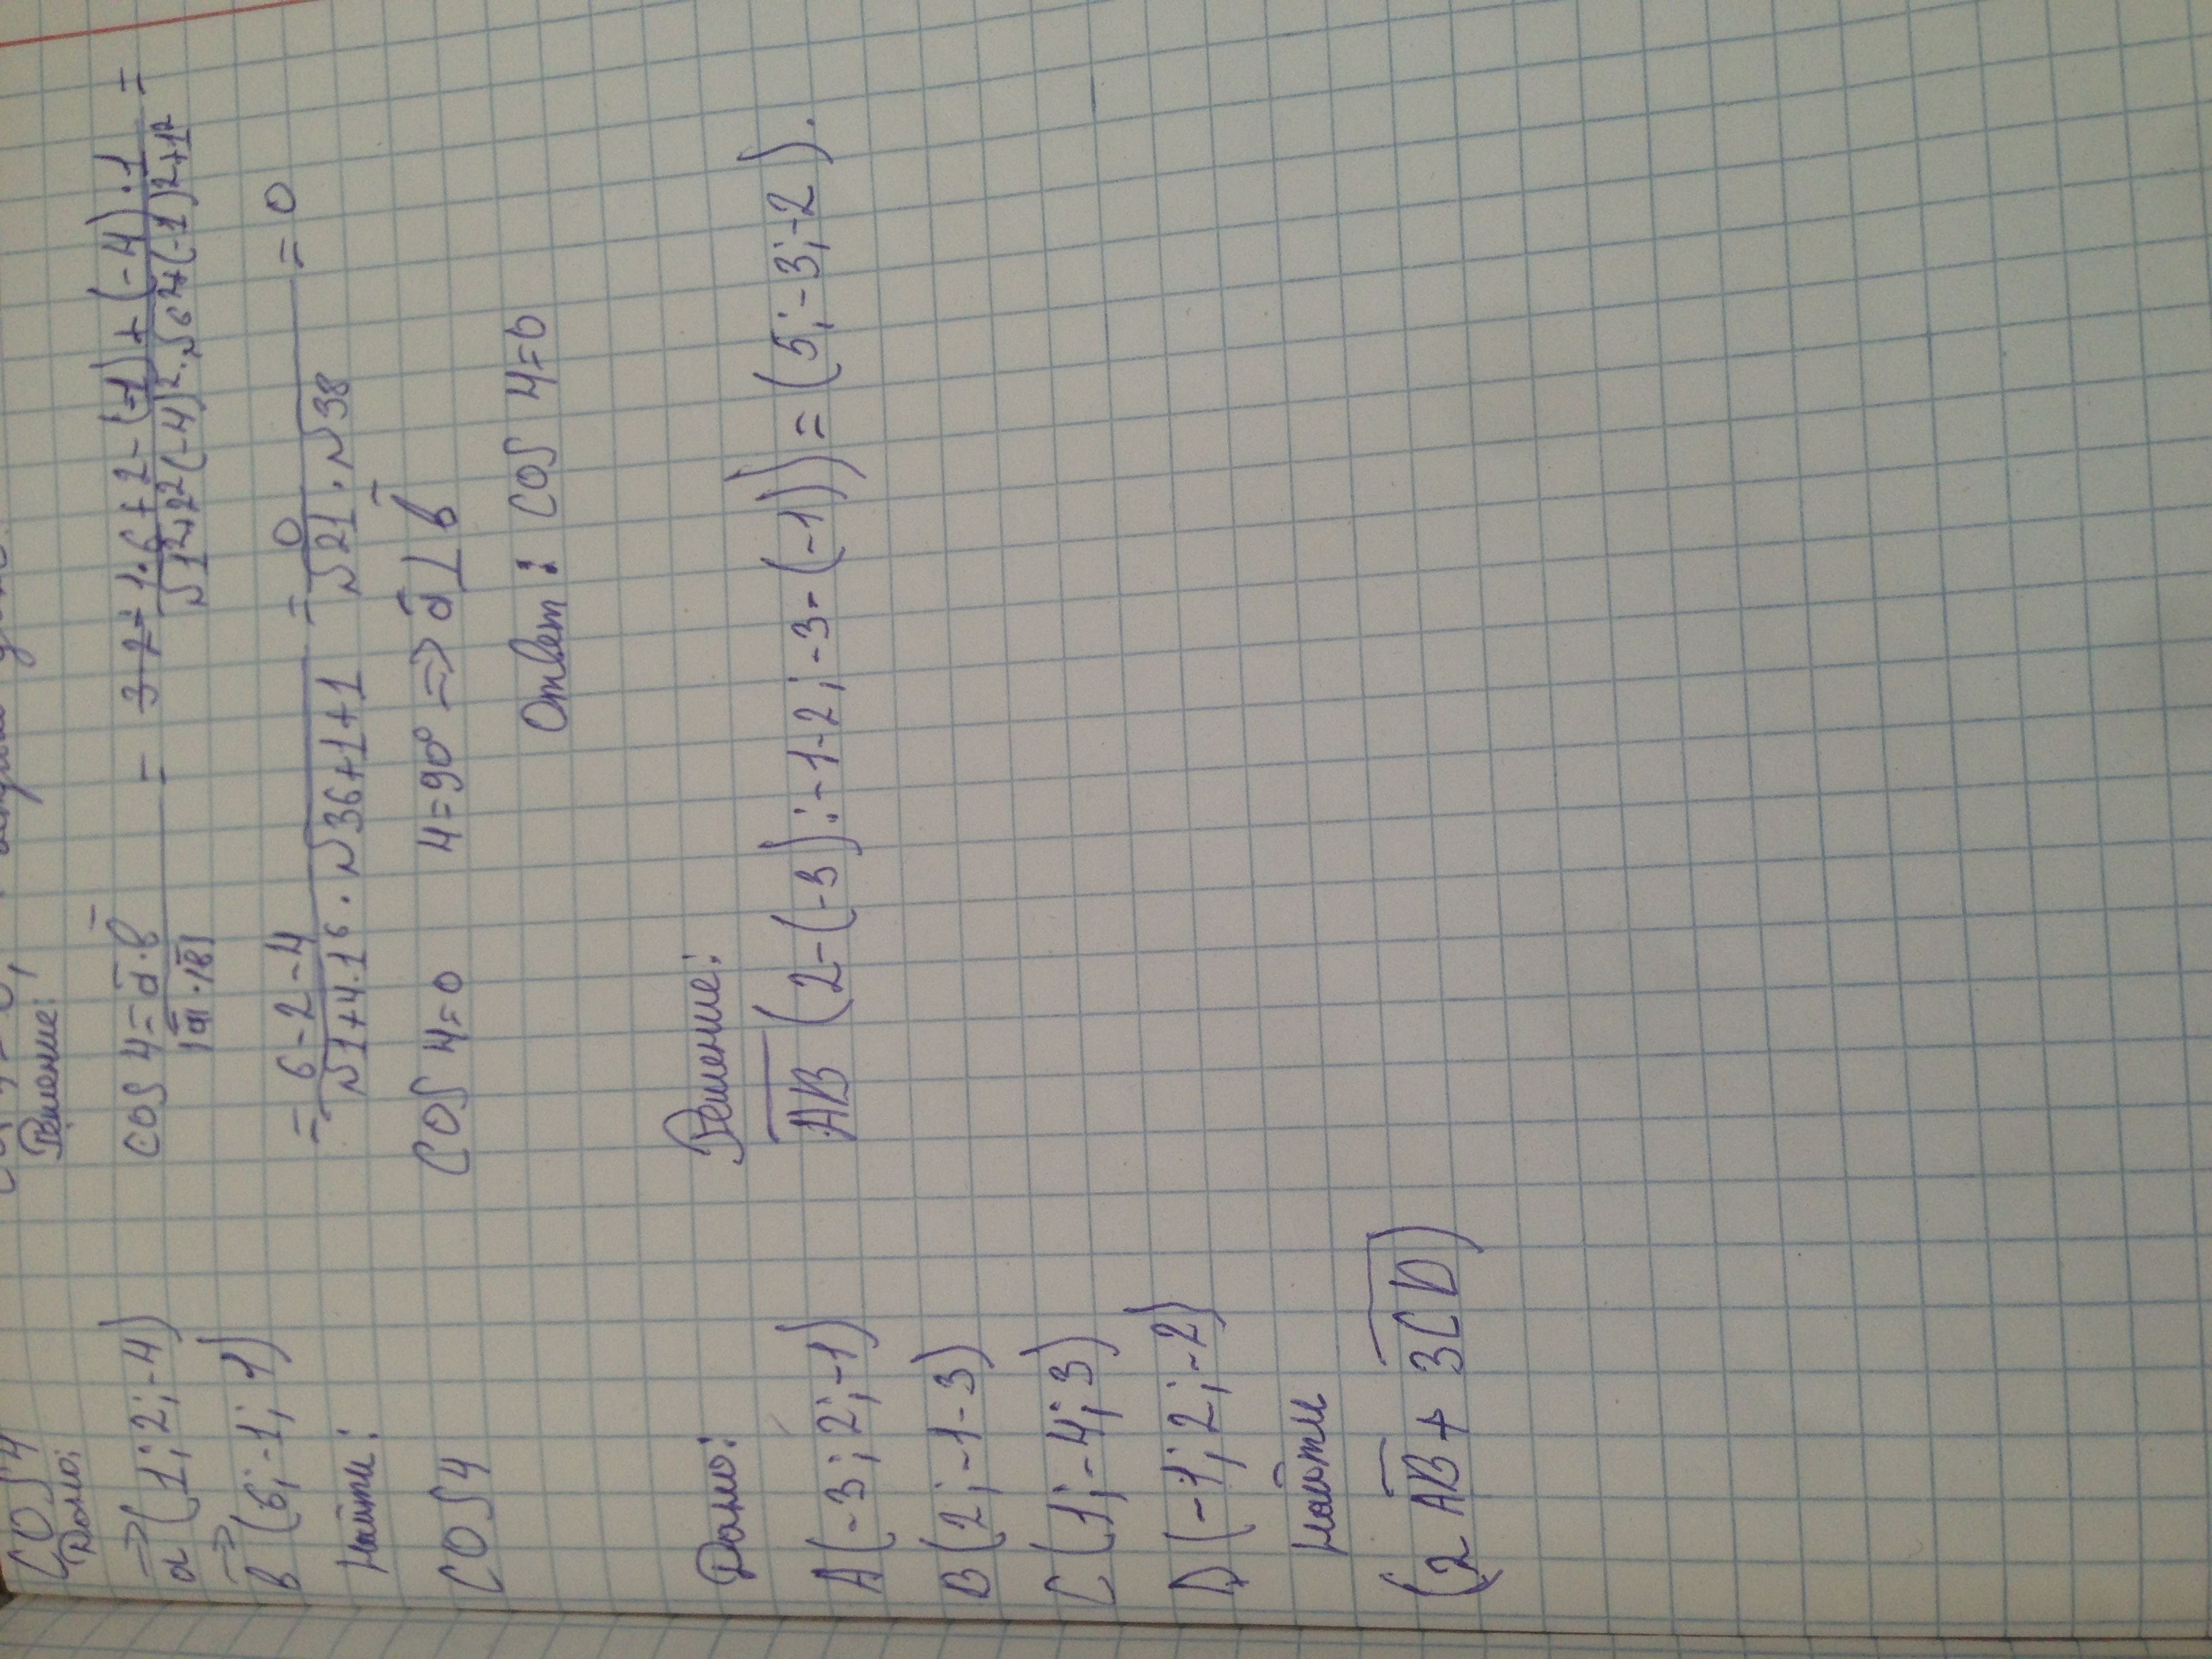 COS Ч
Дано:
a (1; 2; -4)
в (6; -1; 1)
Найти:
COS Ч
Решение:
COS Ч = a · в / |a| · |в| = 1 · 6 + 2 - (-1) + (-4) · 1 / √1² + 2² (-4)² · √6² + (-1)² + 1² =
= 6 - 2 - 4 / √1 + 4 · 1 6 · √36 + 1 + 1 = 0 / √21 · √38 = 0
COS Ч = 0 Ч = 90° => a ⊥ в
Ответ: COS Ч = 0
Дано:
A (-3; 2; -1)
B (2; -1 -3)
C (1; -4; 3)
D (-1; 2; -2)
Найти
(2 AB + 3CD)
Решение:
AB (2 - (-3); -1 - 2; -3 - (-1)) = (5; -3; -2).